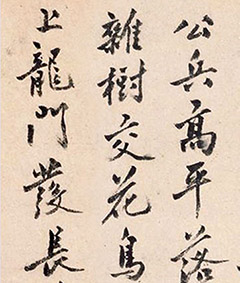 公兵高平落
雜樹交花鳥
上龍門發長